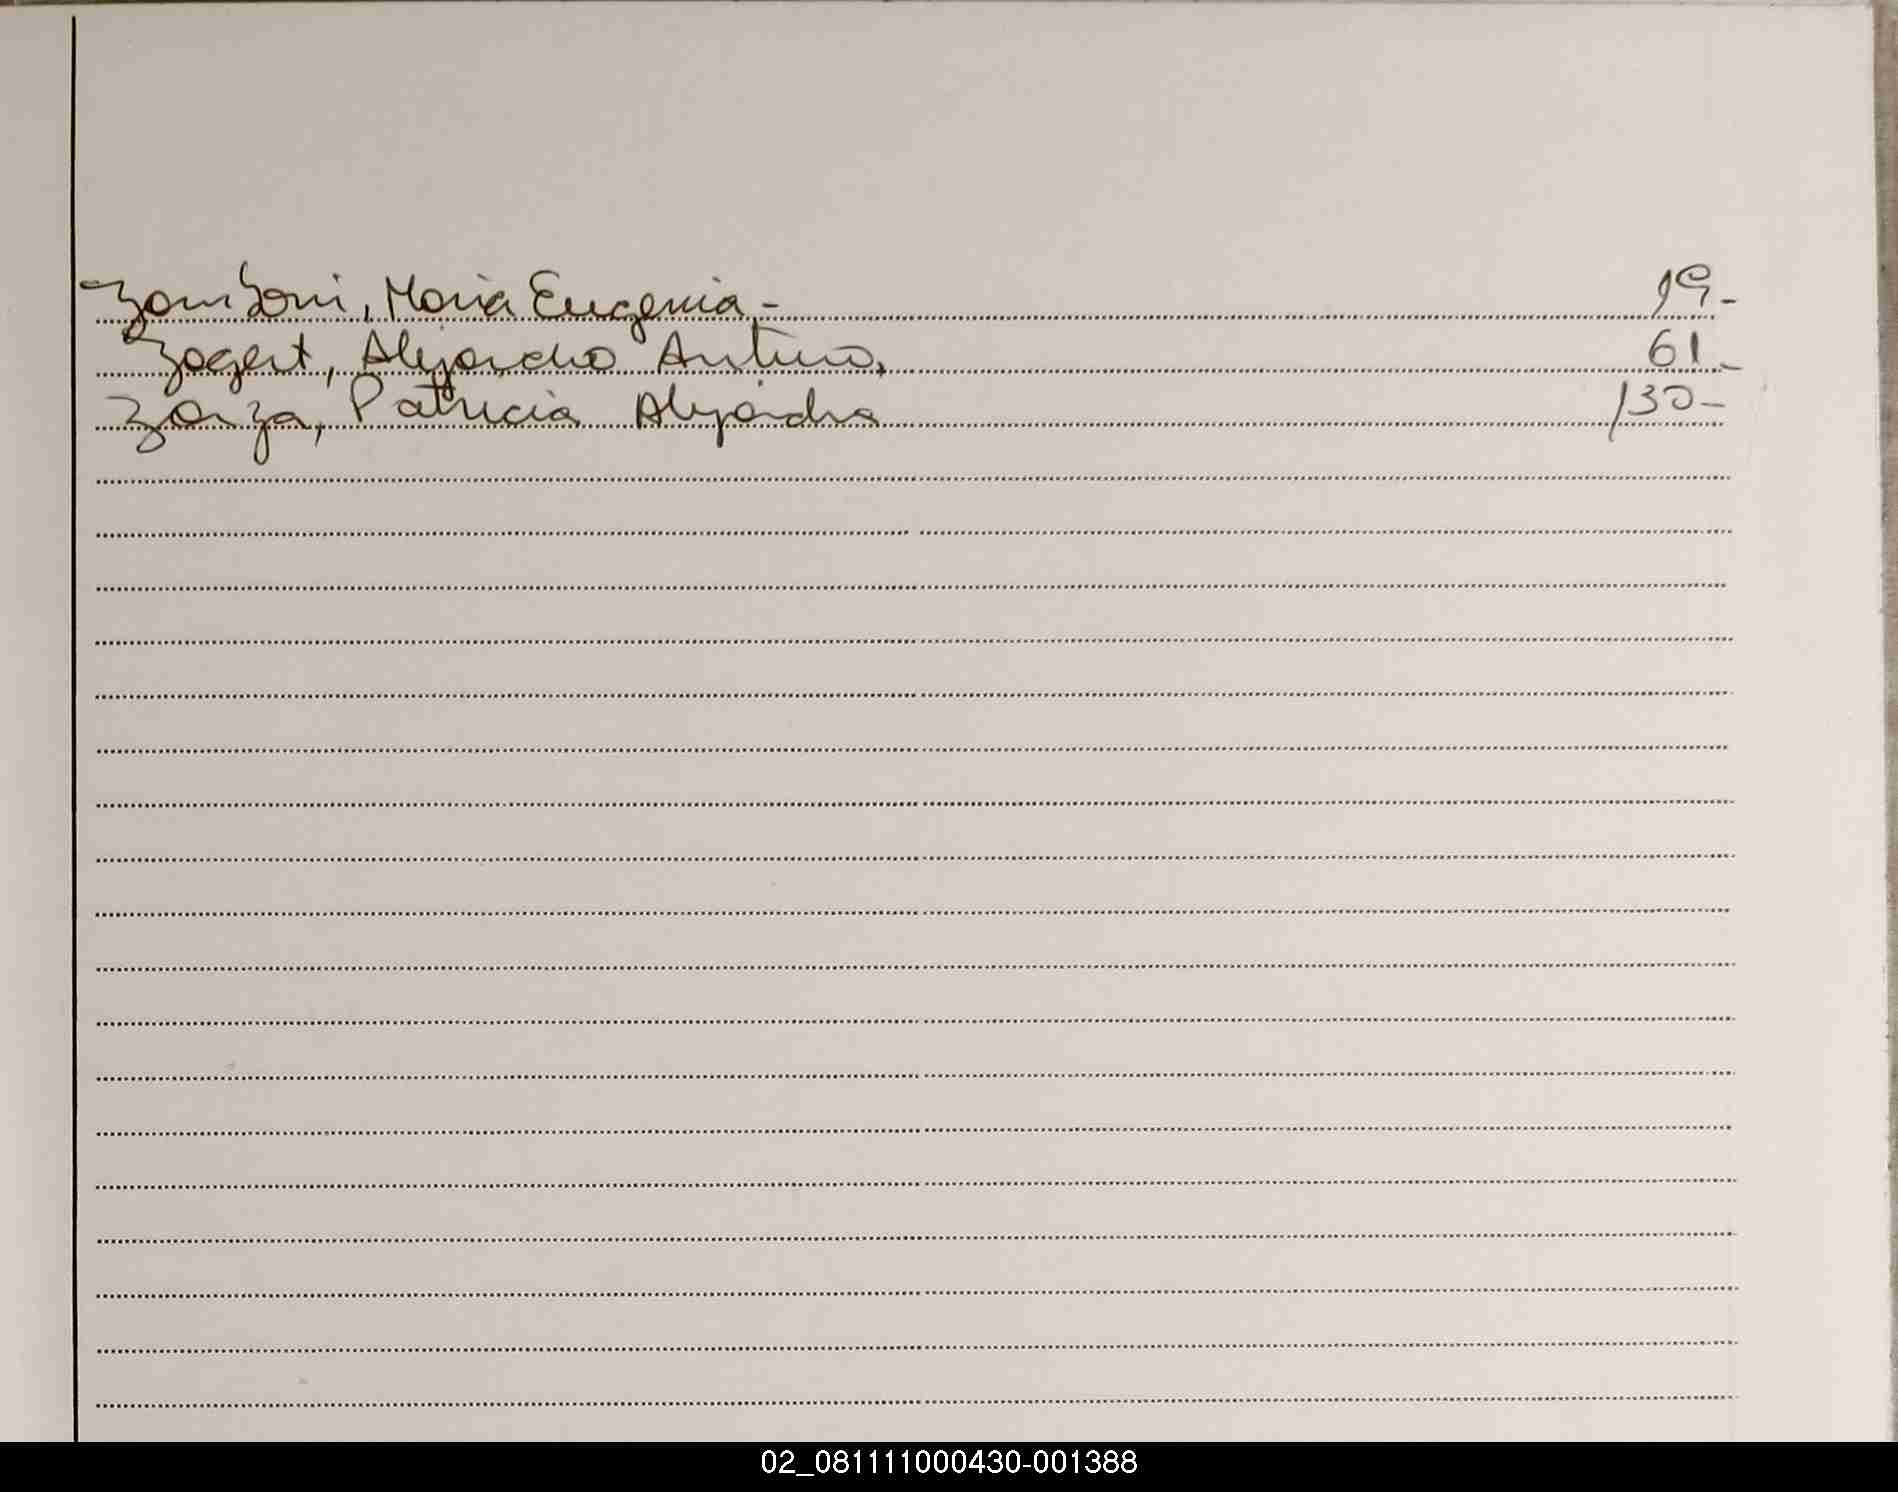 Zamboni, Maria Eugenia - 19-
Zogert, Alejandro Arturo, 61-
Zarza, Patricia Alejandra 130-
02_081111000430-001388